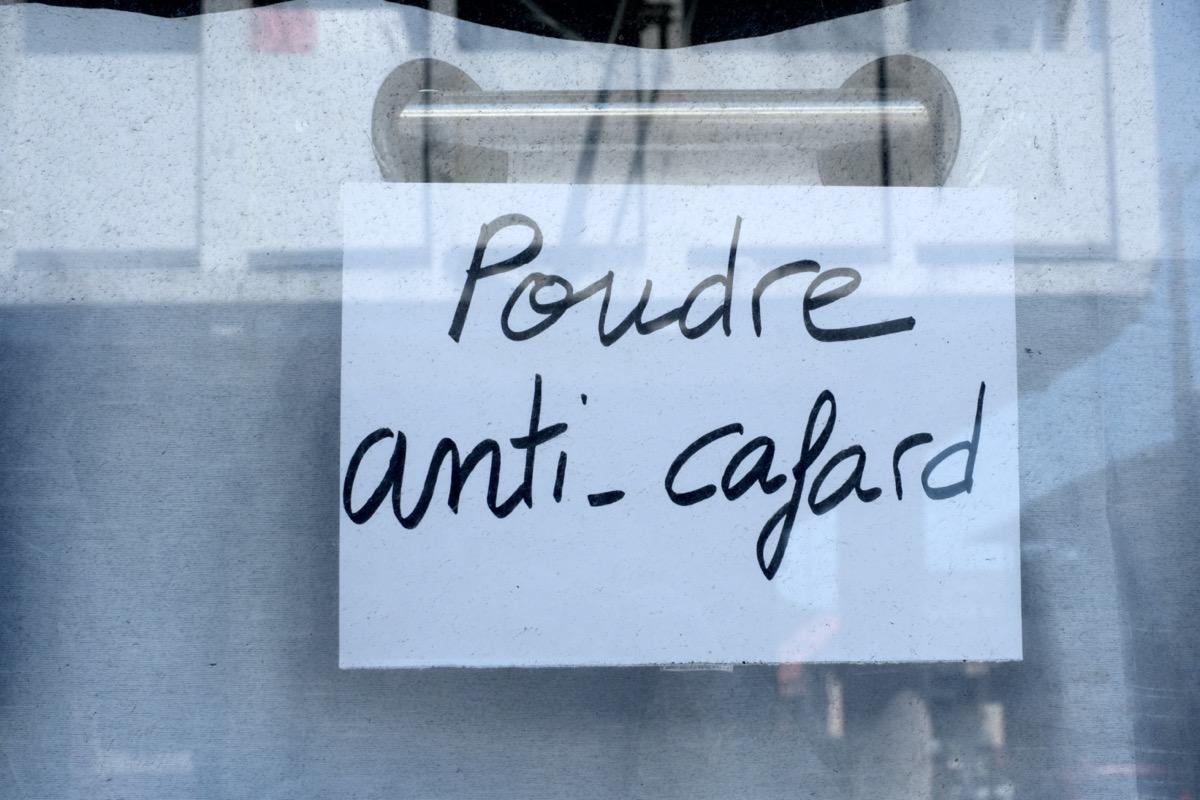 Poudre
anti-cafard